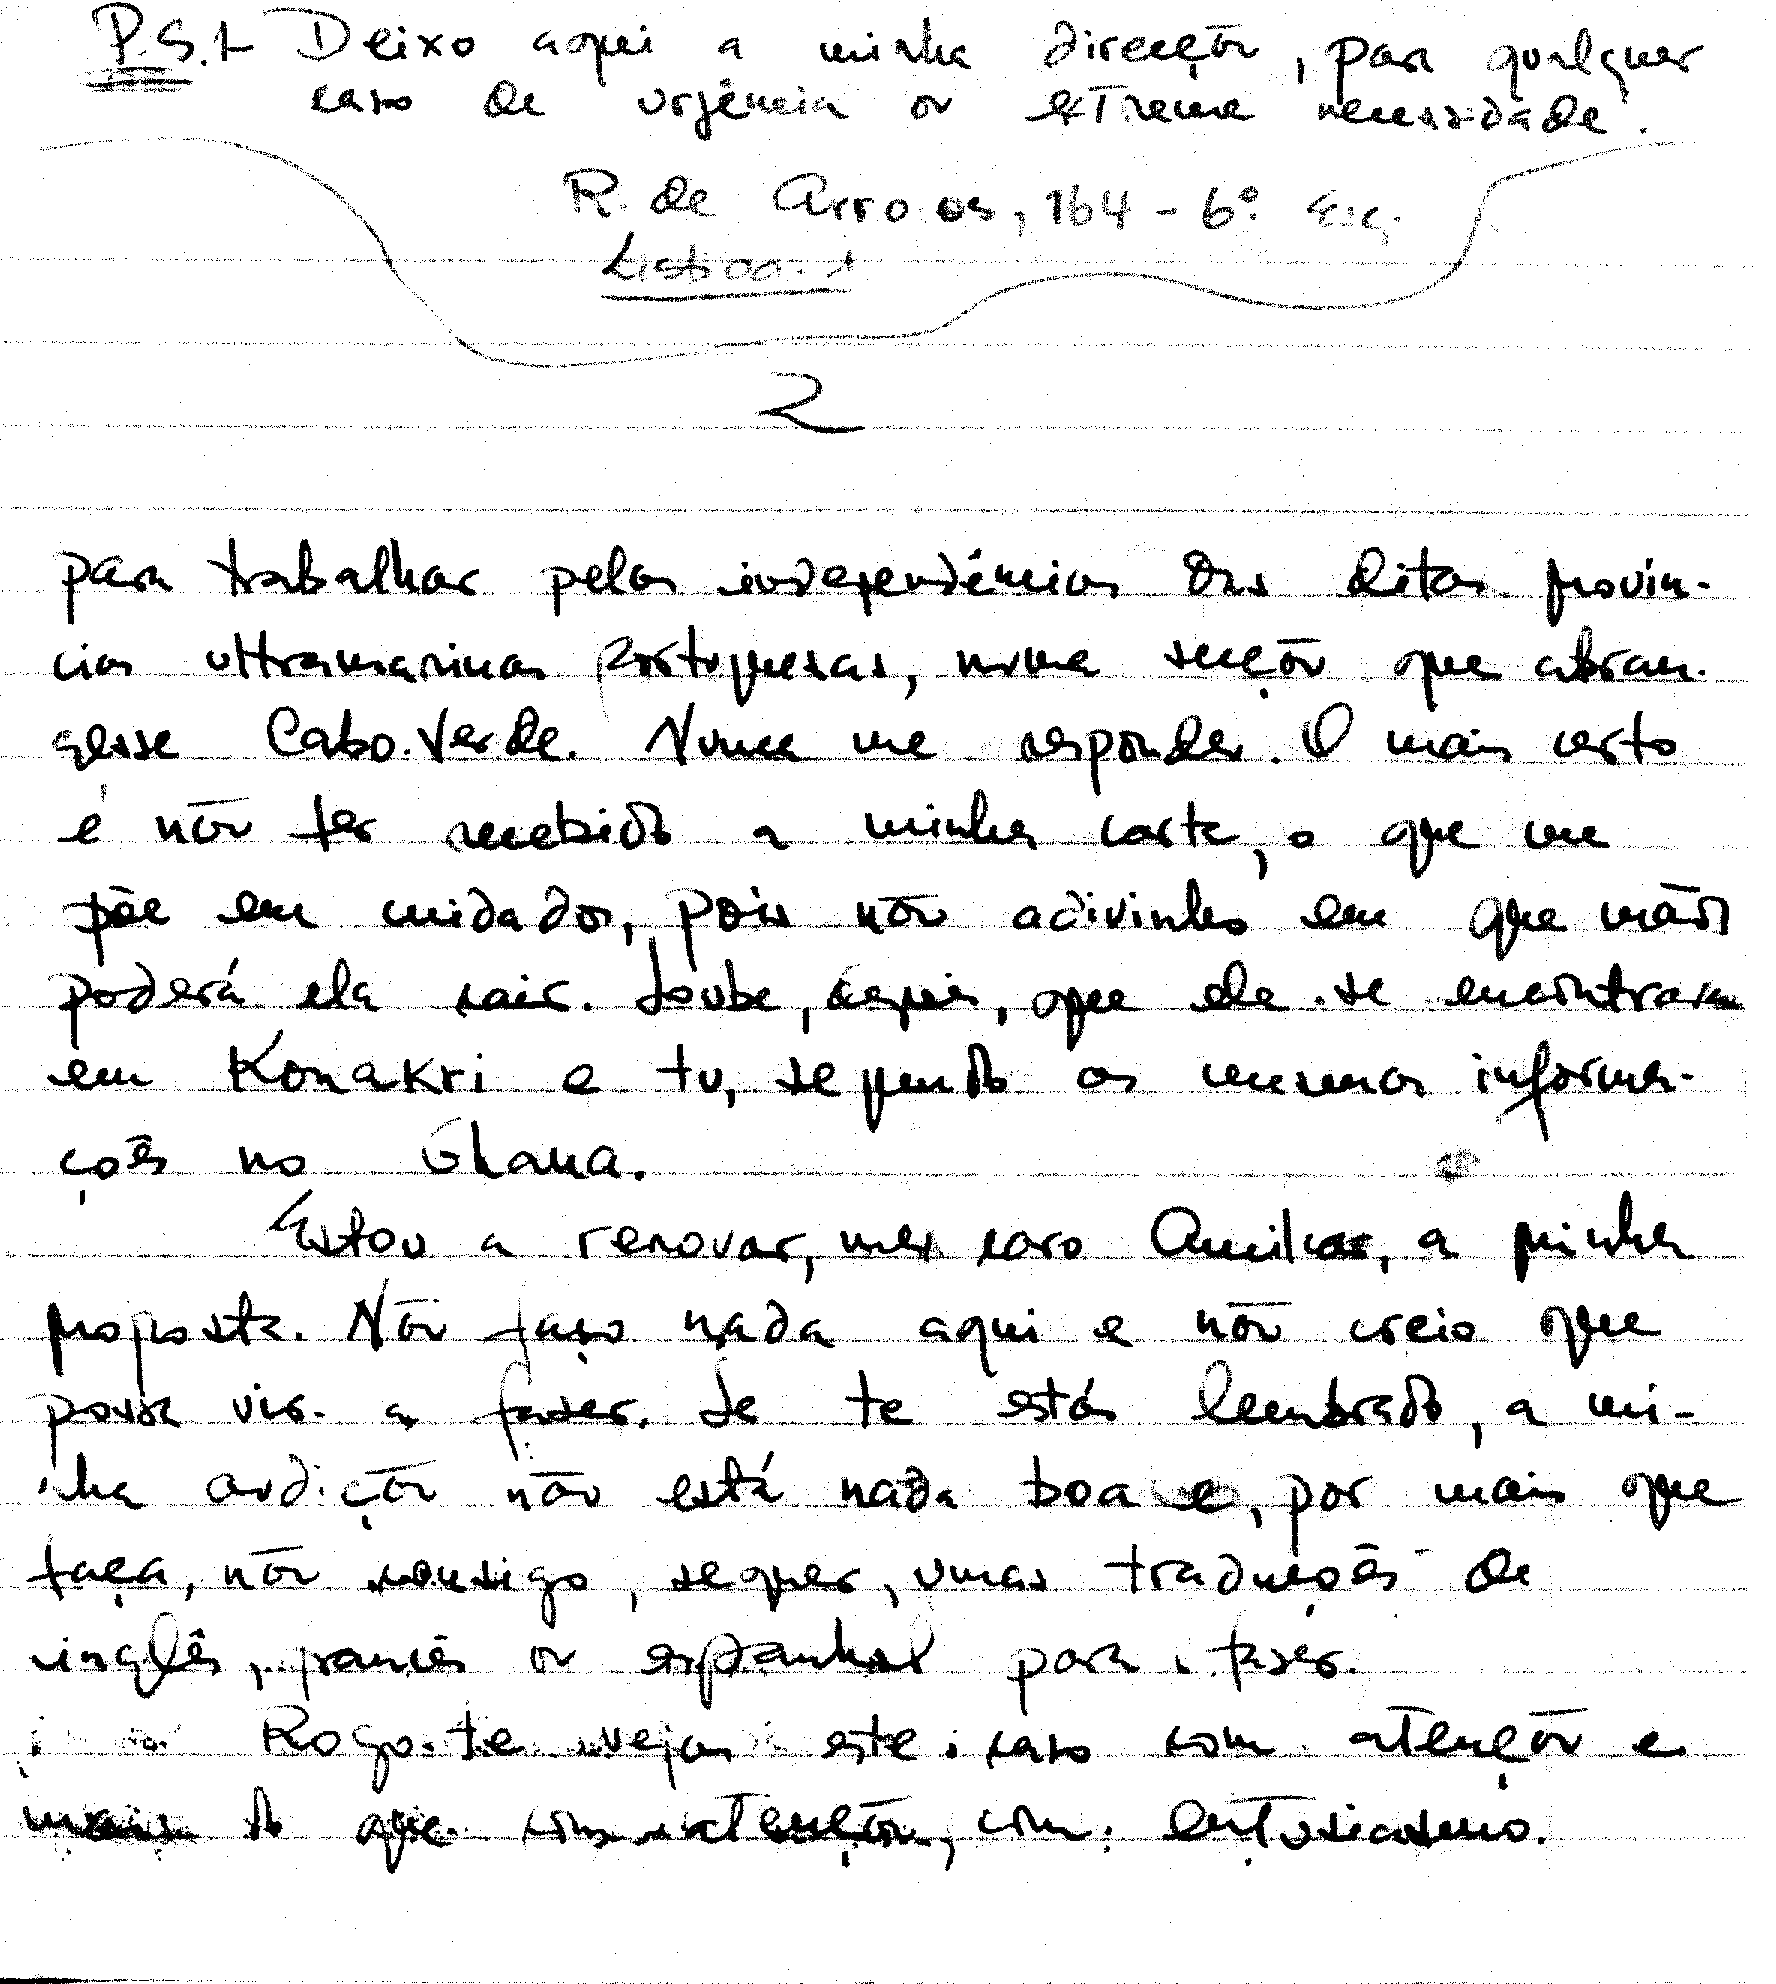 P.S.- Deixo aqui a minha direcção, para qualquer
caso de urgência ou extrema necessidade.
R. de Arroios, 164 - 6º. Esq.
Lisboa - 1
2
para trabalhar pelas independências das ditas provín-
cias ultramarinas portuguesas, numa secção que abran-
gesse Cabo-Verde. Nunca me respondeu. O mais certo
é não ter recebido a minha carta, o que me
põe em cuidados, pois não adivinho em que mãos
poderá ela cair. Soube, depois, que ele se encontrava
em Konakri e tu, segundo as mesmas informa-
ções no Ghana.
Estou a renovar, meu caro Amilcar, a minha
proposta. Não faço nada aqui e não creio que
possa vir a fazer. Se te estás lembrado, a mi-
nha audição não está nada boa e, por mais que
faça, não consigo, sequer, umas traduções de
inglês, francês ou espanhol para fazer.
Rogo-te vejas este caso com atenção e
mais do que com atenção, com entusiasmo.